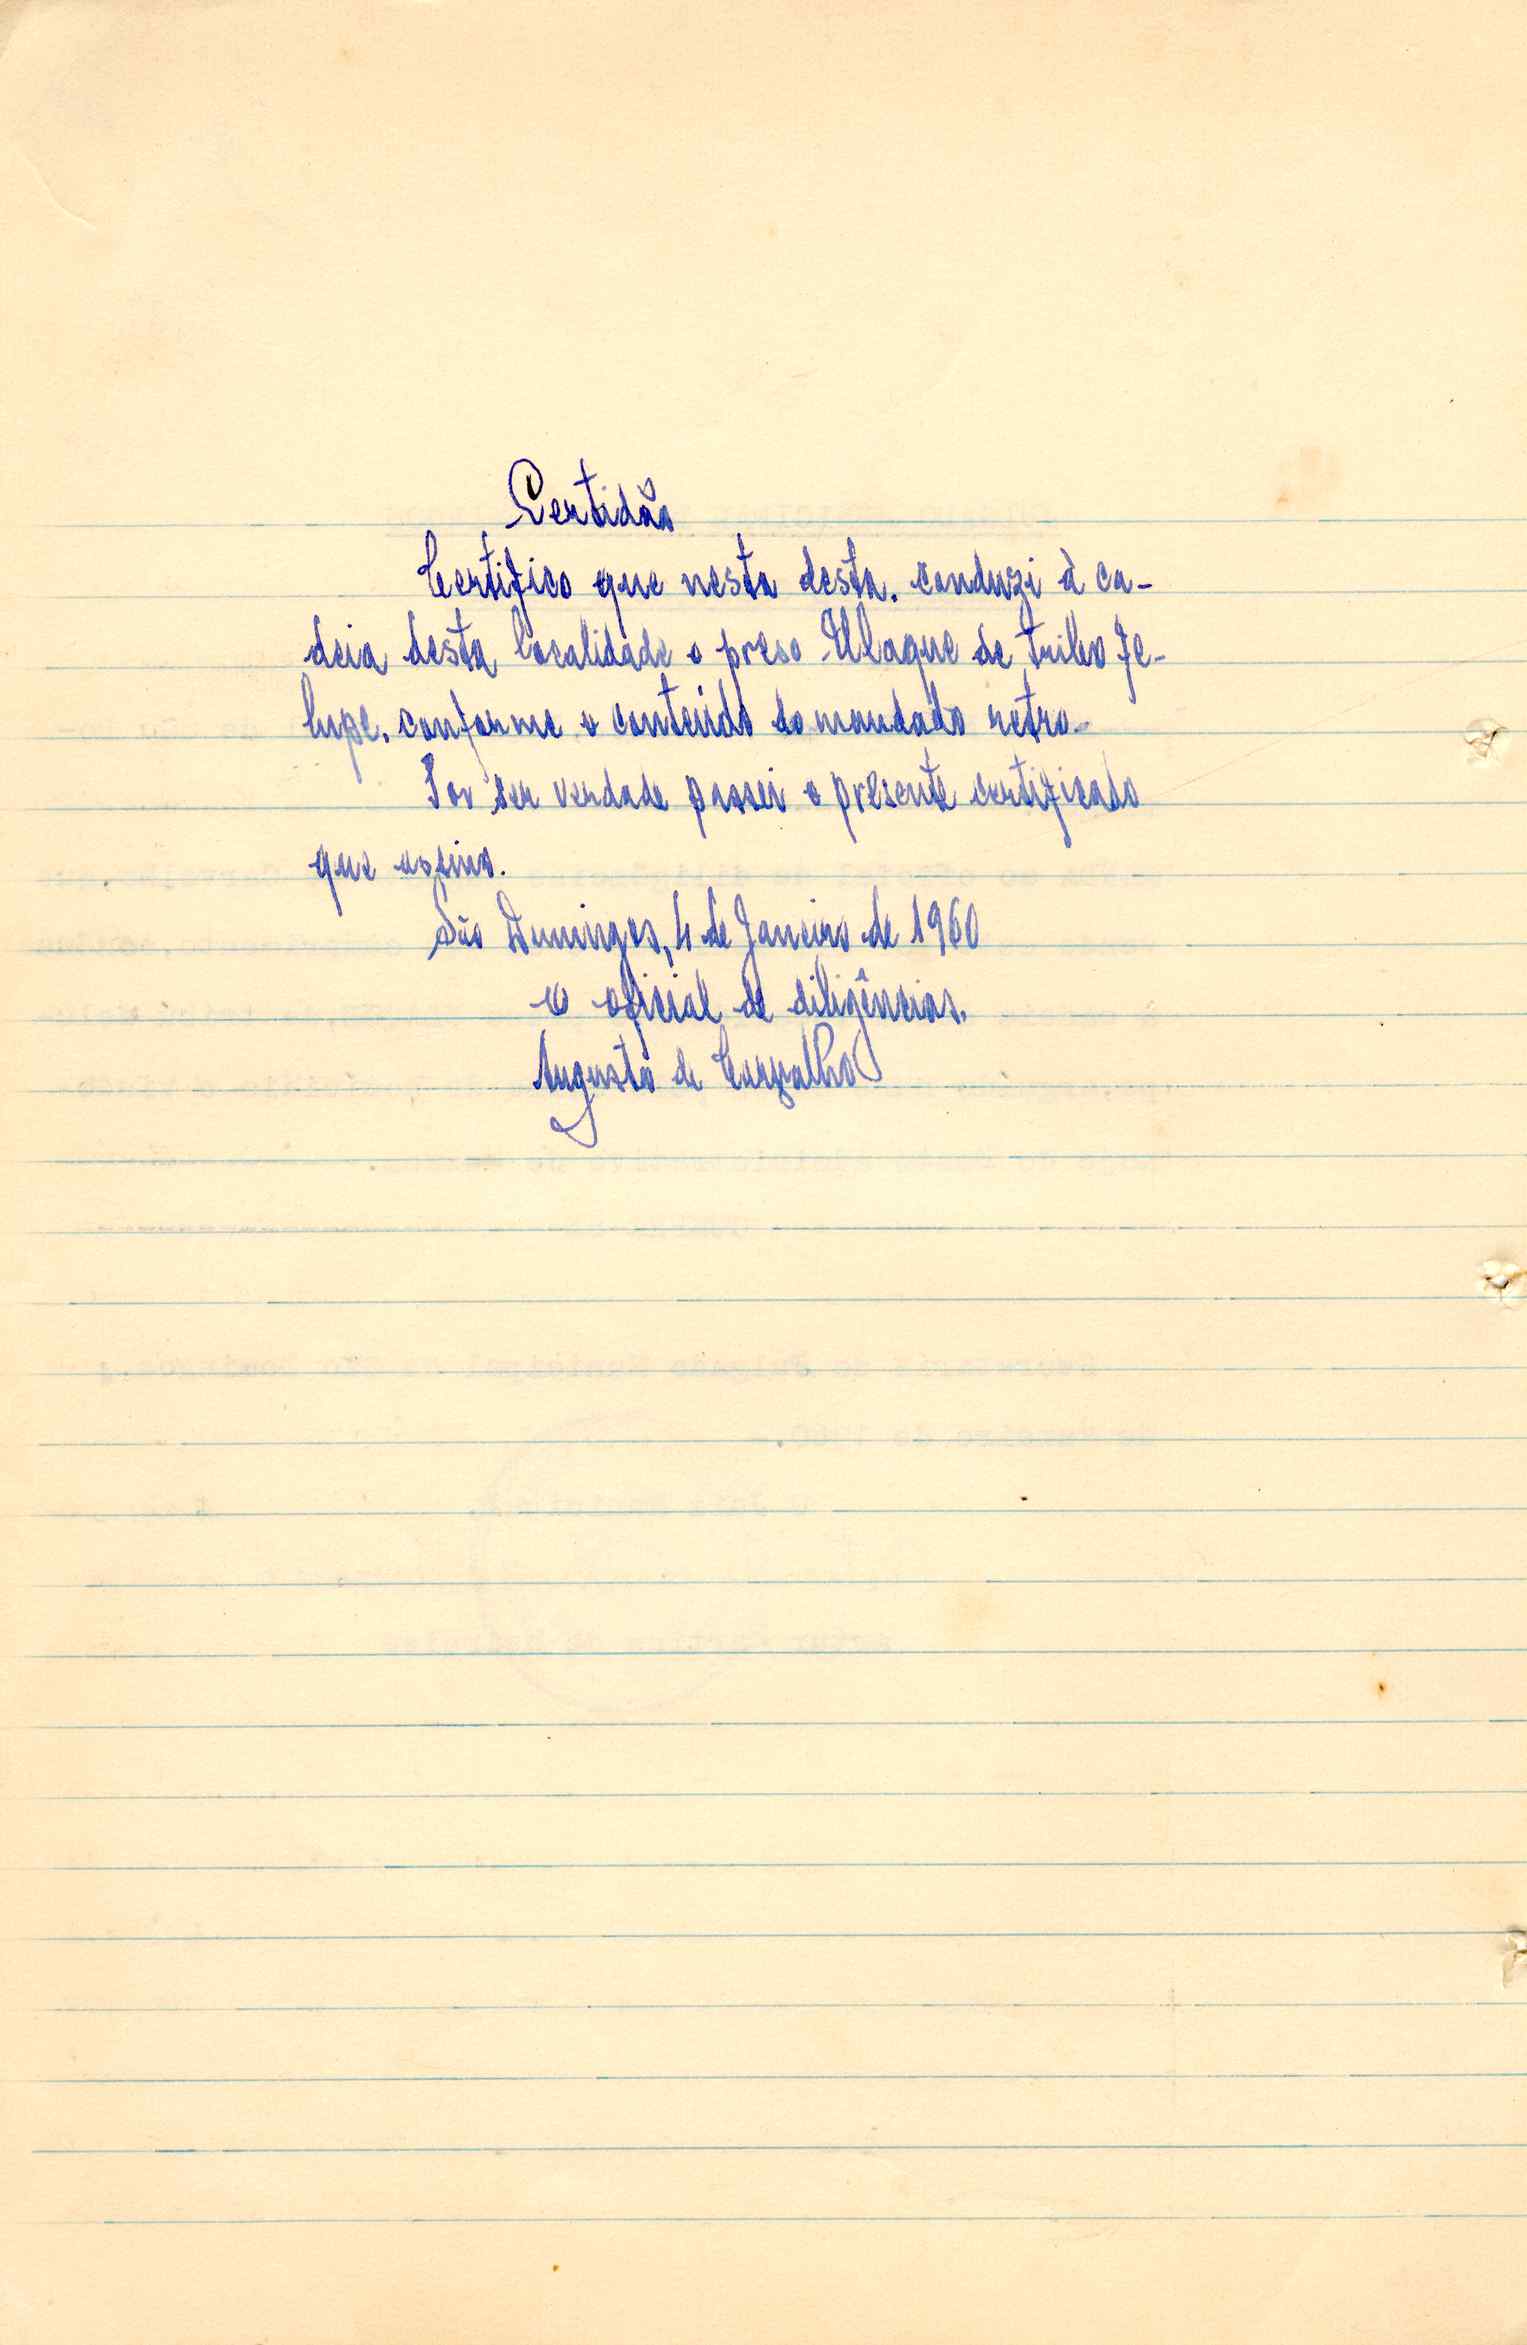 Certidão
Certifico que nesta desta. conduzi à ca-
deia desta localidade o preso Ulaque de tribo Fe-
lupe, conforme o conteúdo do mandado retro.
Por ser verdade passei o presente certificado
que assino.
São Domingos, 4 de Janeiro de 1960
O oficial de diligências,
Augusto de Carvalho